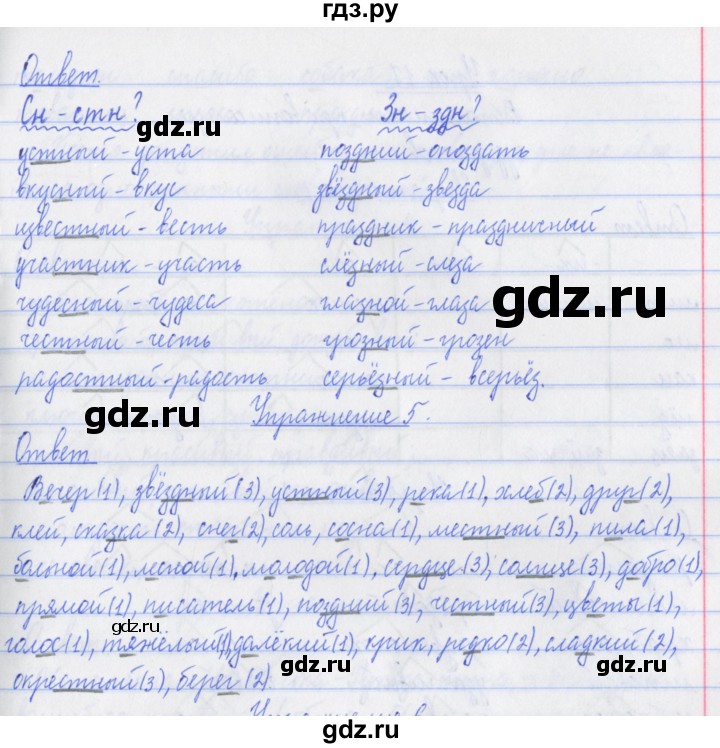 гдз.ру
Ответ.
Сн - стн? Зн - здн?
gdz.ru
устный - уста поздний - опоздать
вкусный - вкус звёздный - звезда
известный - весть праздник - праздничный
участник - участь слёзный - слеза
чудесный - чудеса глазной - глаза
gdz.ru
честный - честь грозный - грозен
радостный - радость серьёзный - всерьёз.
gdz.ru
Упражнение 5.
Ответ
Вечер (1), звёздный (3), устный (3), река (1), хлеб (2), друг (2),
клей, сказка (2), снег (2), соль, сосна (1), местный (3), пила (1),
больной (1), лесной (1), молодой (1), сердце (3), солнце (3), добро (1),
прямой (1), писатель (1), поздний (3), честный (3), цветы (1),
gdz.ru
голос (1), тяжёлый (1), далёкий (1), крик, редко (2), сладкий (2),
окрестный (3), берег (2).
gdz.ru